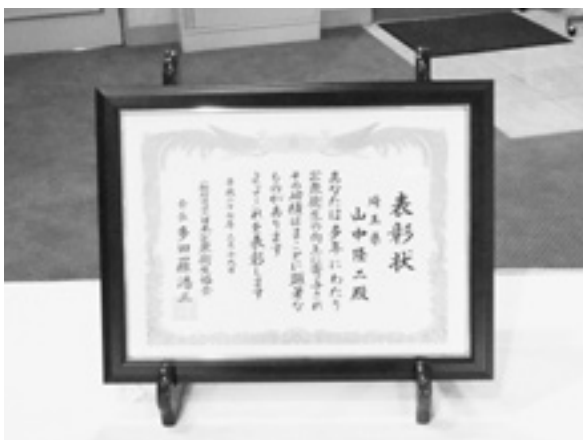 表彰状
埼玉県
山中隆二殿
あなたは多年にわたり
公衆衛生の向上に寄与され
その功績はまことに顕著な
ものがあります
よってこれを表彰します
平成二十七年
日本公衆衛生協会
会長 多田羅浩三